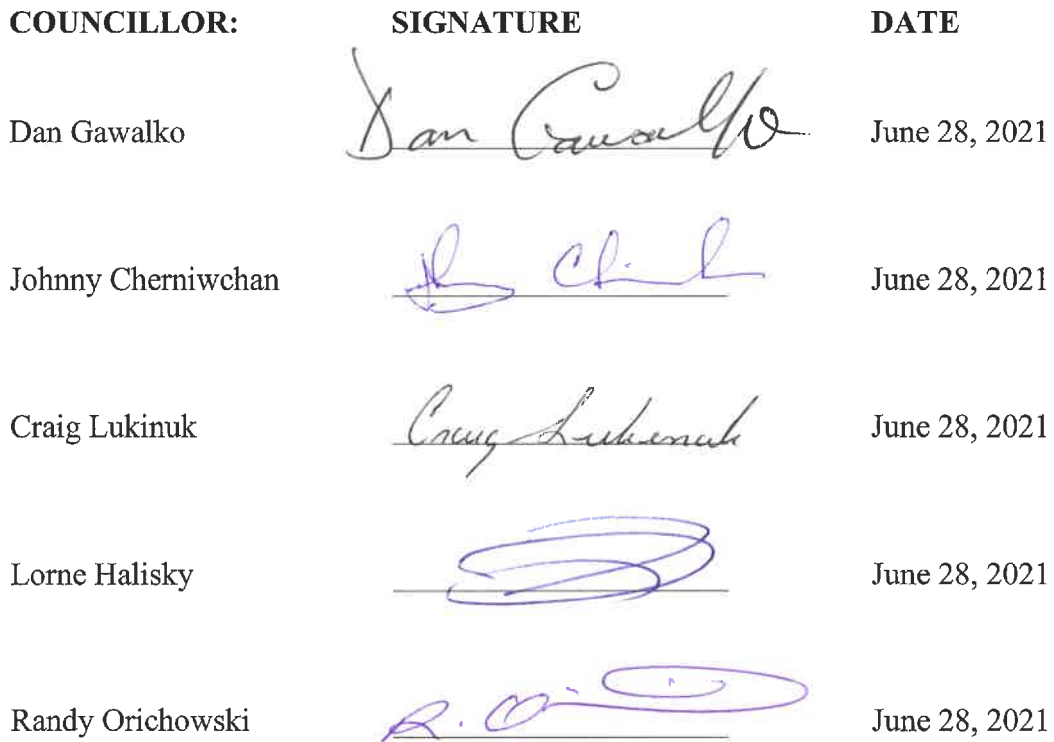 COUNCILLOR: SIGNATURE DATE
Dan Gawalko Dan Gawalko June 28, 2021
Johnny Cherniwchan June 28, 2021
Craig Lukinuk Craig Lukinuk June 28, 2021
Lorne Halisky June 28, 2021
Randy Orichowski R. June 28, 2021